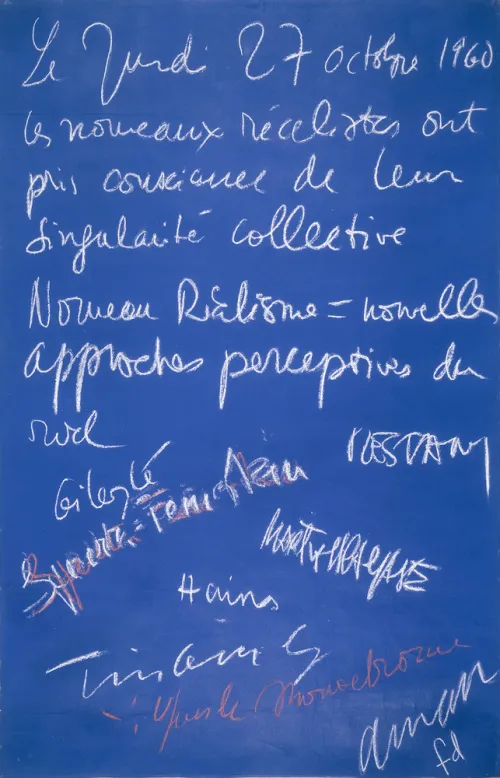 Le Jeudi 27 octobre 1960
les nouveaux réalistes ont
pris conscience de leur
singularité collective
Nouveau Réalisme = nouvelles
approches perceptives du
réel
RESTANY
Martial RAYSSE
Hains
Tinguely
Yves le Monochrome
arman
fd